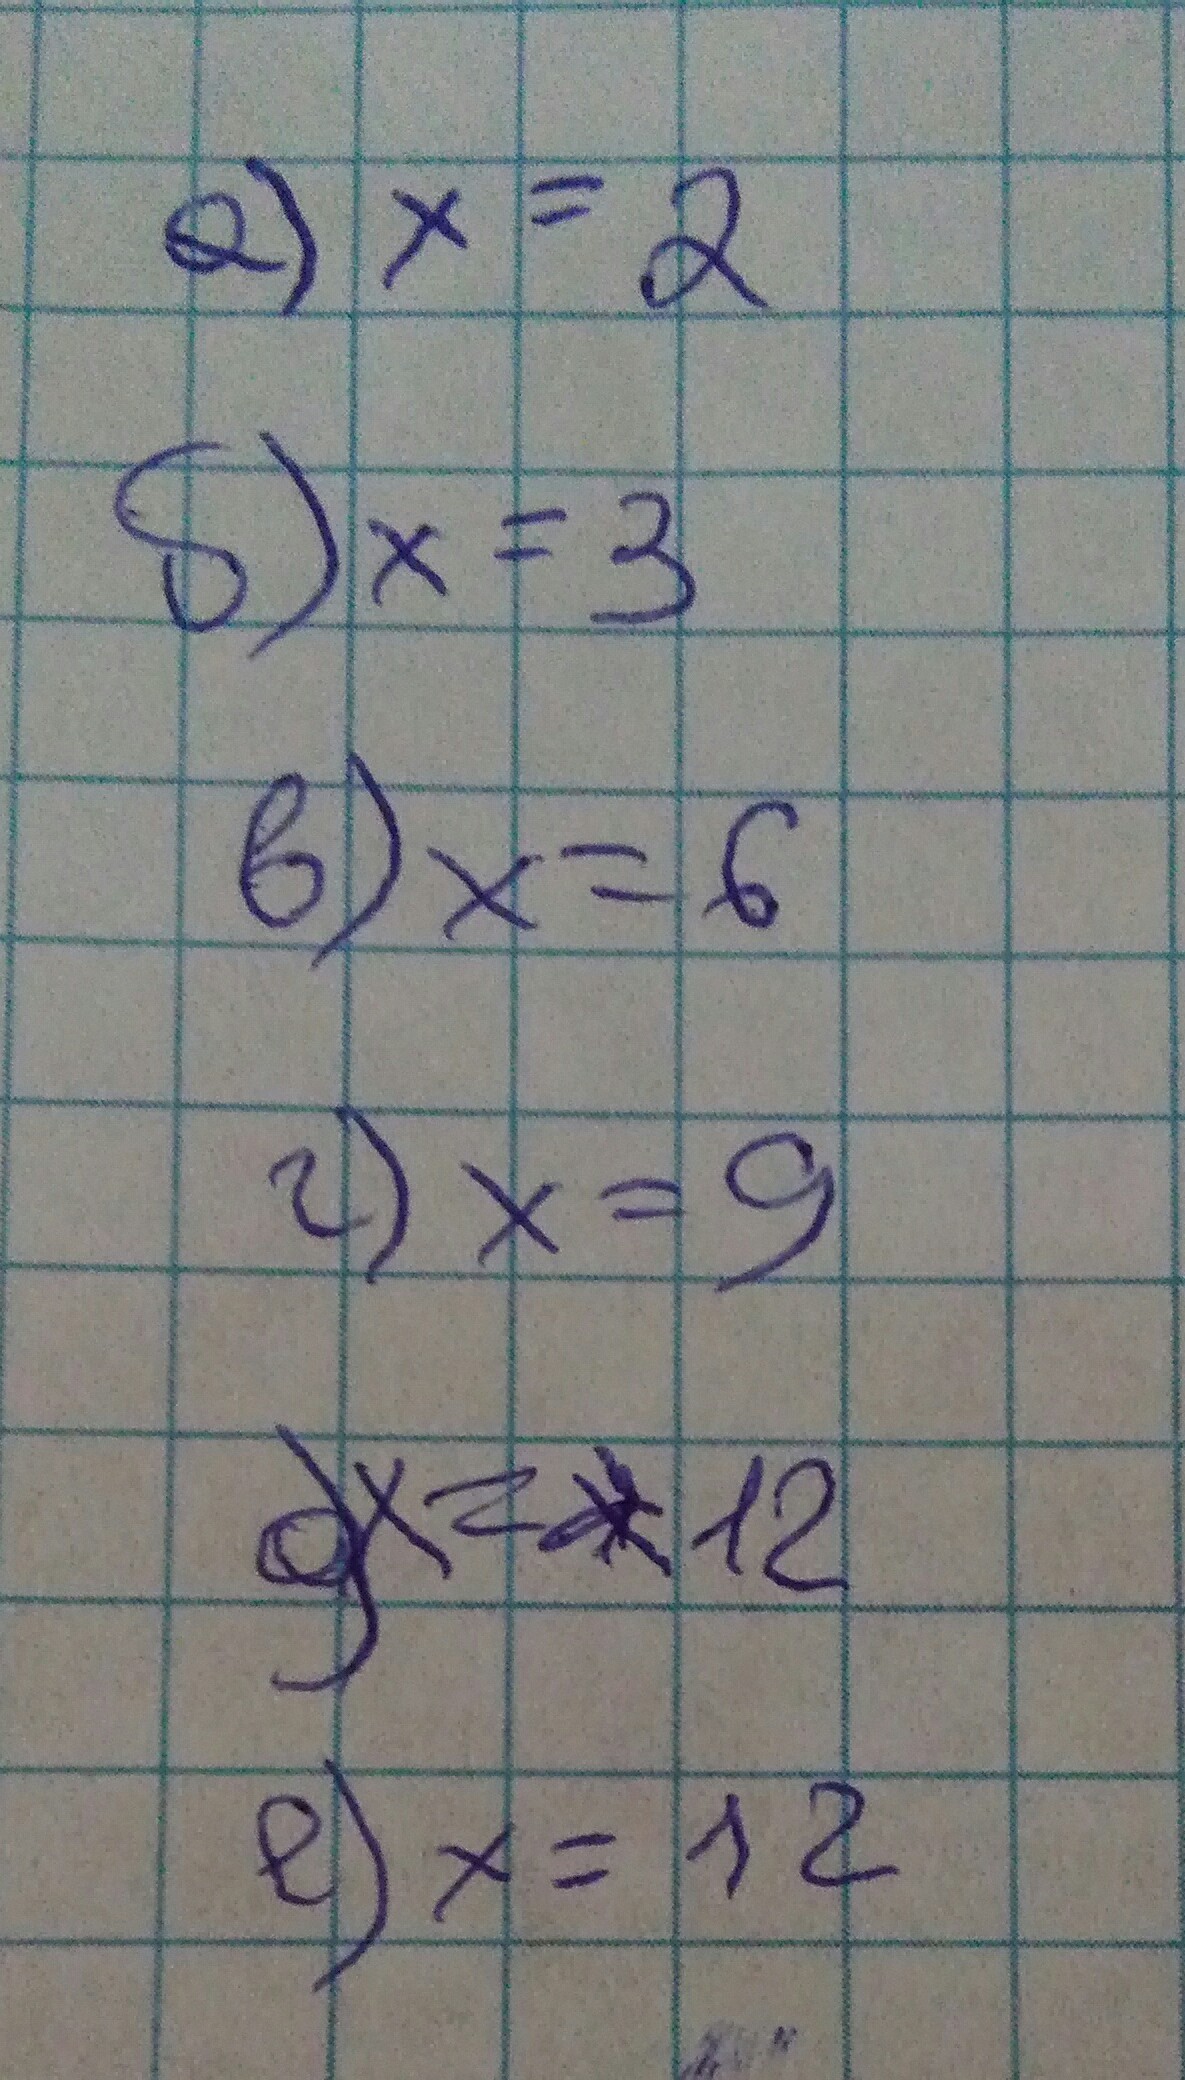 а) x = 2
б) x = 3
в) x = 6
г) x = 9
д) x = 12
е) x = 12